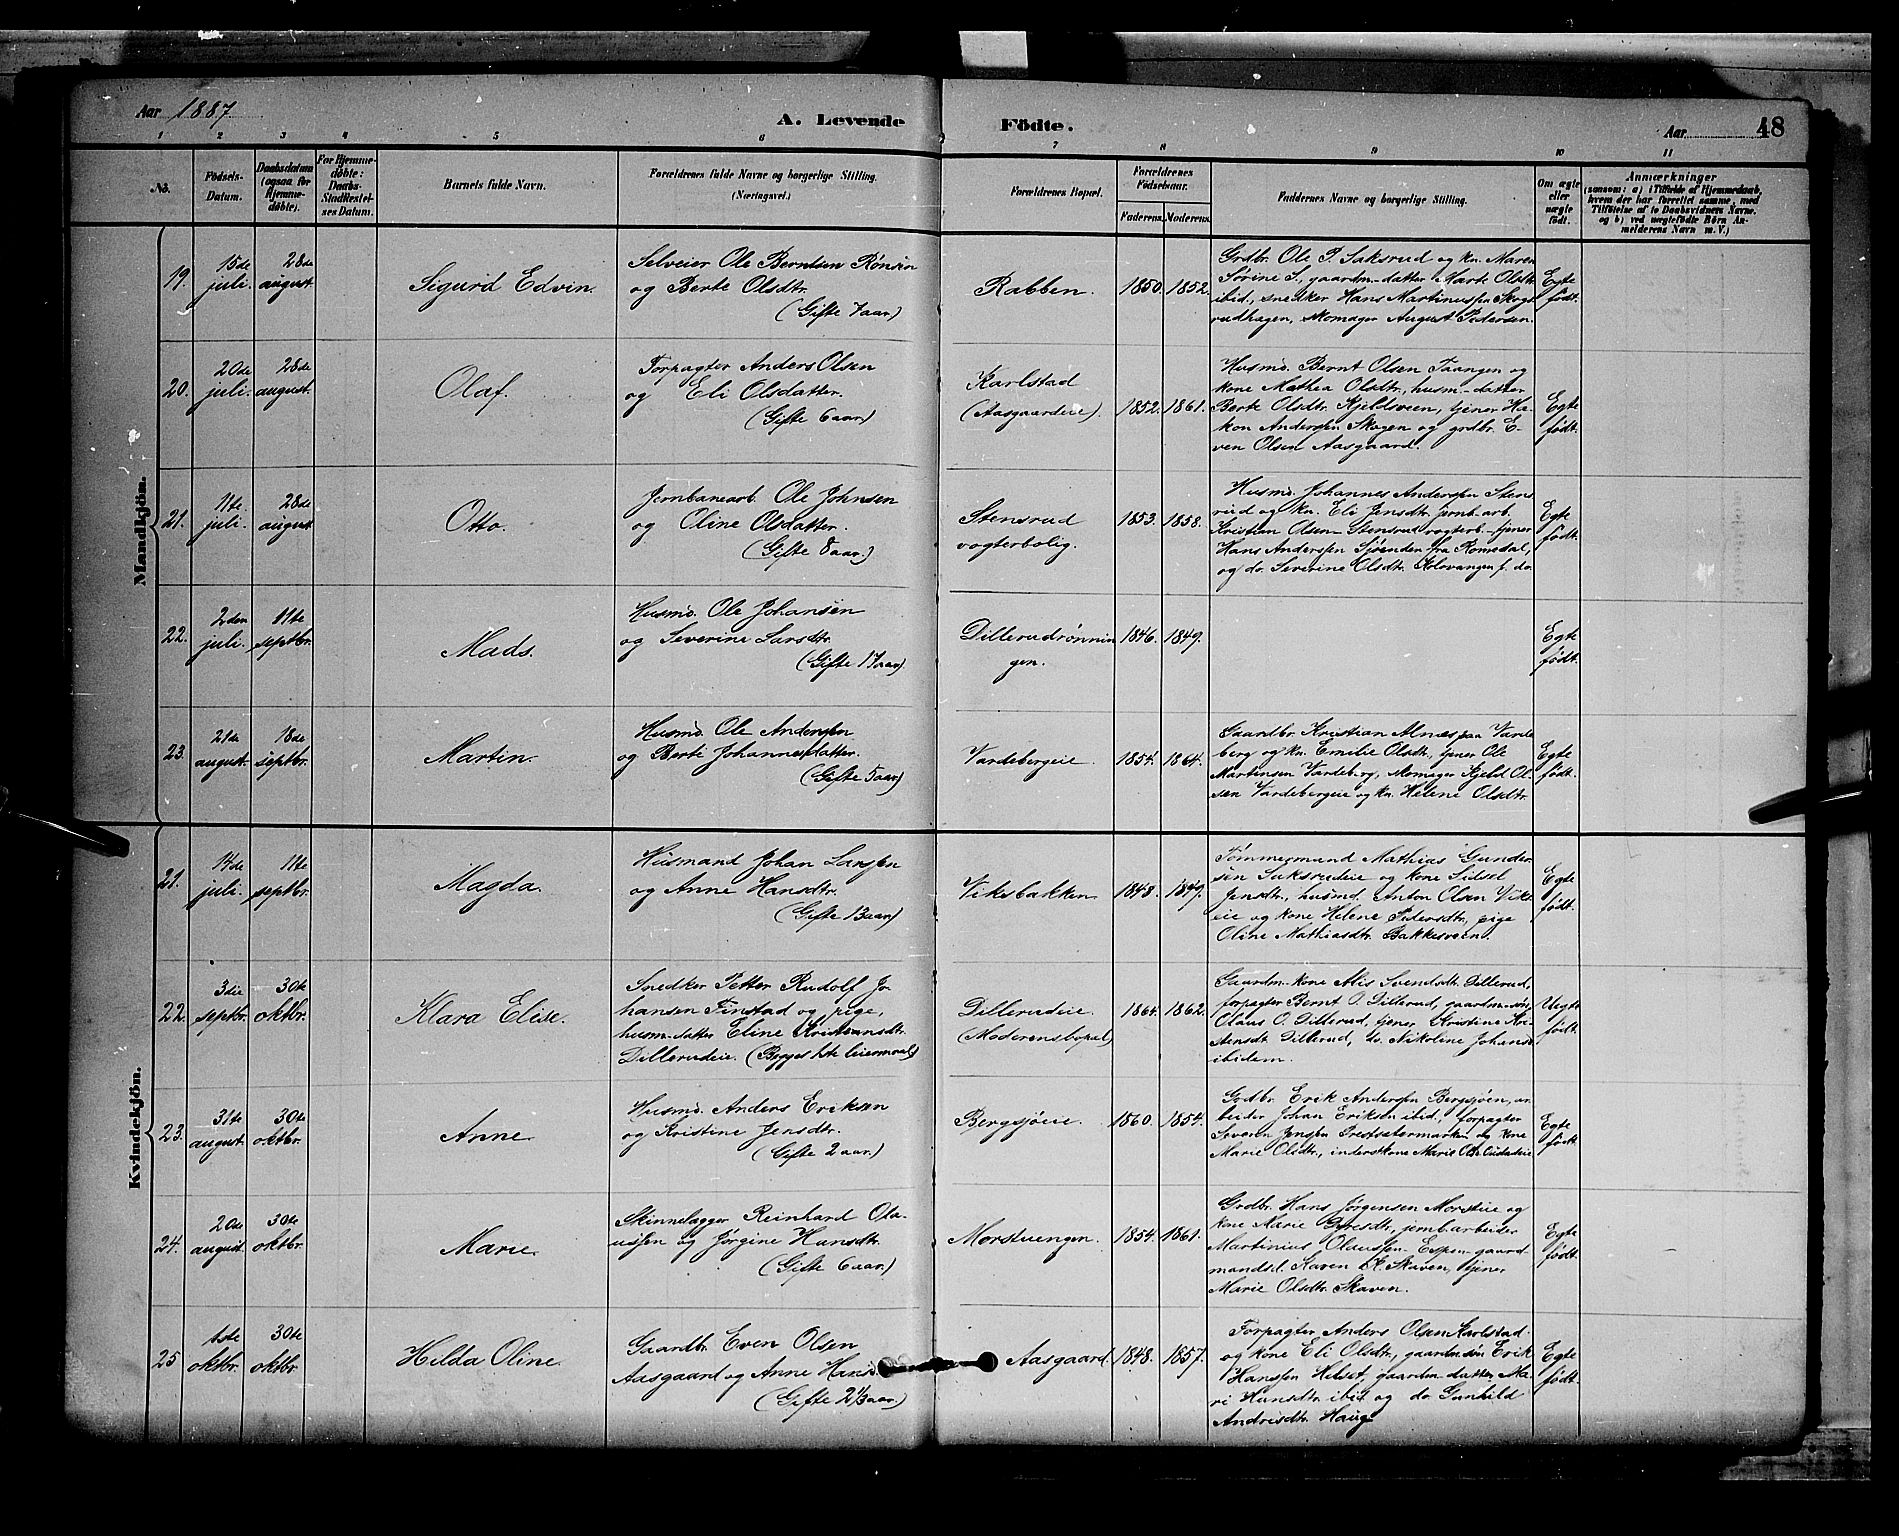 Aar 1887
A. Levende
Födte.
Aar
48
1 2 3 4 5 6 7 8 9 10 11
No.
Födsels-
Datum.
Daabsdatum
(ogsaa for
Hjemme-
döbte).
For Hjemme-
döbte:
Daabs-
Stadfæstel-
ses Datum.
Barnets fulde Navn.
Forældrenes fulde Navne og borgerlige Stilling.
(Næringsvei.)
Forældrenes Bopæl.
Forældrenes
Födselsaar.
Faderens.
Moderens.
Faddernes Navne og borgerlige Stilling.
Om ægte
eller
uægte
födt.
Anmærkninger
(saasom: a) i Tilfælde af Hjemmedaab,
hvem der har forrettet samme, med
Tilföielse af to Daabsvidners Navne,
og b) ved uægtefödte Börn An-
melderens Navn m. V.)
Mandkjön.
19.
15de
juli.
28de
august.
Sigurd Edvin.
Selveier Ole Berntsen Rønsen
og Berte Olsdtr.
(Gifte 7 aar)
Rabben.
1850. 1852.
Grdbr. Ole P. Saksrud og kn. Maren
Sørine S., gaardm-datter Marte Olsdtr.
ibid., snedker Hans Martinussen Skogs
rudhagen, Skomager August Pedersen.
Egte
født.
20.
20de
juli.
28de
august.
Olaf.
Forpagter Anders Olsen
og Eli Olsdatter.
(Gifte 6 aar.)
Karlstad
(Aasgaardeie)
1852. 1861.
Husmd. Bernt Olsen Taangen og
kone Mathea Olsdtr., husm-datter
Berte Olsdtr. Kjeldsveen, tjener Ha-
kon Andersen Skogen og grdbr. E-
ven Olsen Aasgaard.
Egte
født.
21.
11te
juli.
28de
august
Otto.
Jernbanearb. Ole Johnsen
og Oline Olsdatter.
(Gifte 8 aar.)
Stensrud
vogterbolig.
1853. 1858.
Husmd. Johannes Andersen Stens
rud og kn. Eli Jensdtr. jernb.arb.
Kristian Olsen Stensrud vogterb. tjener
Hans Andersen Sjøenden fra Romedal,
og do. Severine Olsdtr. Kolovangen f. do.
Egte
født.
22.
2den
juli.
11te
septbr.
Mads.
Husmd. Ole Johansen
og Severine Larsdtr.
(Gifte 17 aar)
Dillerudrønnin
gen.
1846. 1849.
Egte
født.
23.
21de
august.
18de
septbr.
Martin.
Husmd. Ole Andersen
og Berte Johannesdatter.
(Gifte 5 aar)
Vardebergeie.
1854. 1864.
Gaardbr. Kristian Alnæs paa Varde
berg og kn. Emilie Olsdtr., tjener Ole
Martinsen Vardeberg, Skomager Kjeld Ol-
sen Vardebergeie og kn. Helene Olsdtr.
Egte
født.
Kvindekjön.
21.
14de
juli.
11te
septbr.
Magda.
Husmand Johan Larsen
og Anne Hansdtr.
(Gifte 13 aar)
Viksbakken
1848. 1849.
Tømmermand Mathias Gunder
sen Saksrudeie og kone Sidsel
Jensdtr., husmd. Anton Olsen Viks
eie og kone Helene Pedersdtr., pige
Oline Mathiasdtr. Bakkesveen.
Egte
født.
22.
3die
septbr.
30te
oktbr.
Klara Elise.
Snedker Petter Rudolf Jo
hansen Finstad og pige,
husm-datter Eline Kristiansdtr.
Dillerudeie. (Begges 1ste leiermaal)
Dillerudeie.
(Moderens bopæl)
1864. 1862.
Gaardm-kone Alis Svendsdtr. Dillerud,
forpagter Bernt O. Dillerud, gaardm-søn
Olaus O. Dillerud, tjener Kristine Kri-
stensdt. Dillerud, do. Nikoline Johans
ibidem.
Uegte
født.
23.
31te
august.
30te
oktbr.
Anne.
Husmd. Anders Eriksen
og Kristine Jensdtr.
(Gifte 2 aar.)
Bergsjøeie.
1860. 1854.
Grdbr. Erik Andersen Bergsjøen, ar-
beider Johan Eriksen ibid., forpagter
Severin Jensen Prestsætermarken og kone
Marie Olsdtr., inderstkone Marie
Egte
født
24.
20de
august.
30te
oktbr.
Marie.
Skinnelægger Reinhard Ola-
ussen og Jørgine Hansdtr.
(Gifte 6 aar.)
Morstuengen.
1854. 1861.
Grdbr. Hans Jørgensen Morstueie og
kone Marie Pedersdtr., jernb.arbeider
Martinius Olaussen Espen gaard-
mandsd. Karen K. Skaven, tjener
Marie Olsdtr. Skaven.
Egte
født.
25
1ste
oktbr.
30te
oktbr.
Helda Oline.
Gaardbr. Even Olsen
Aasgaard og Anne Hansd
(Gifte 2 1/3 aar.)
Aasgaard.
1848. 1857.
Forpagter Anders Olsen Karlstad
og kone Eli Olsdtr., gaardm. søn Erik
Hanssen Helset, gaardm. datter Ma-
ri Hansdtr. ibid. og do Gunhild
Andrisdtr. Hauge
Egte
født.